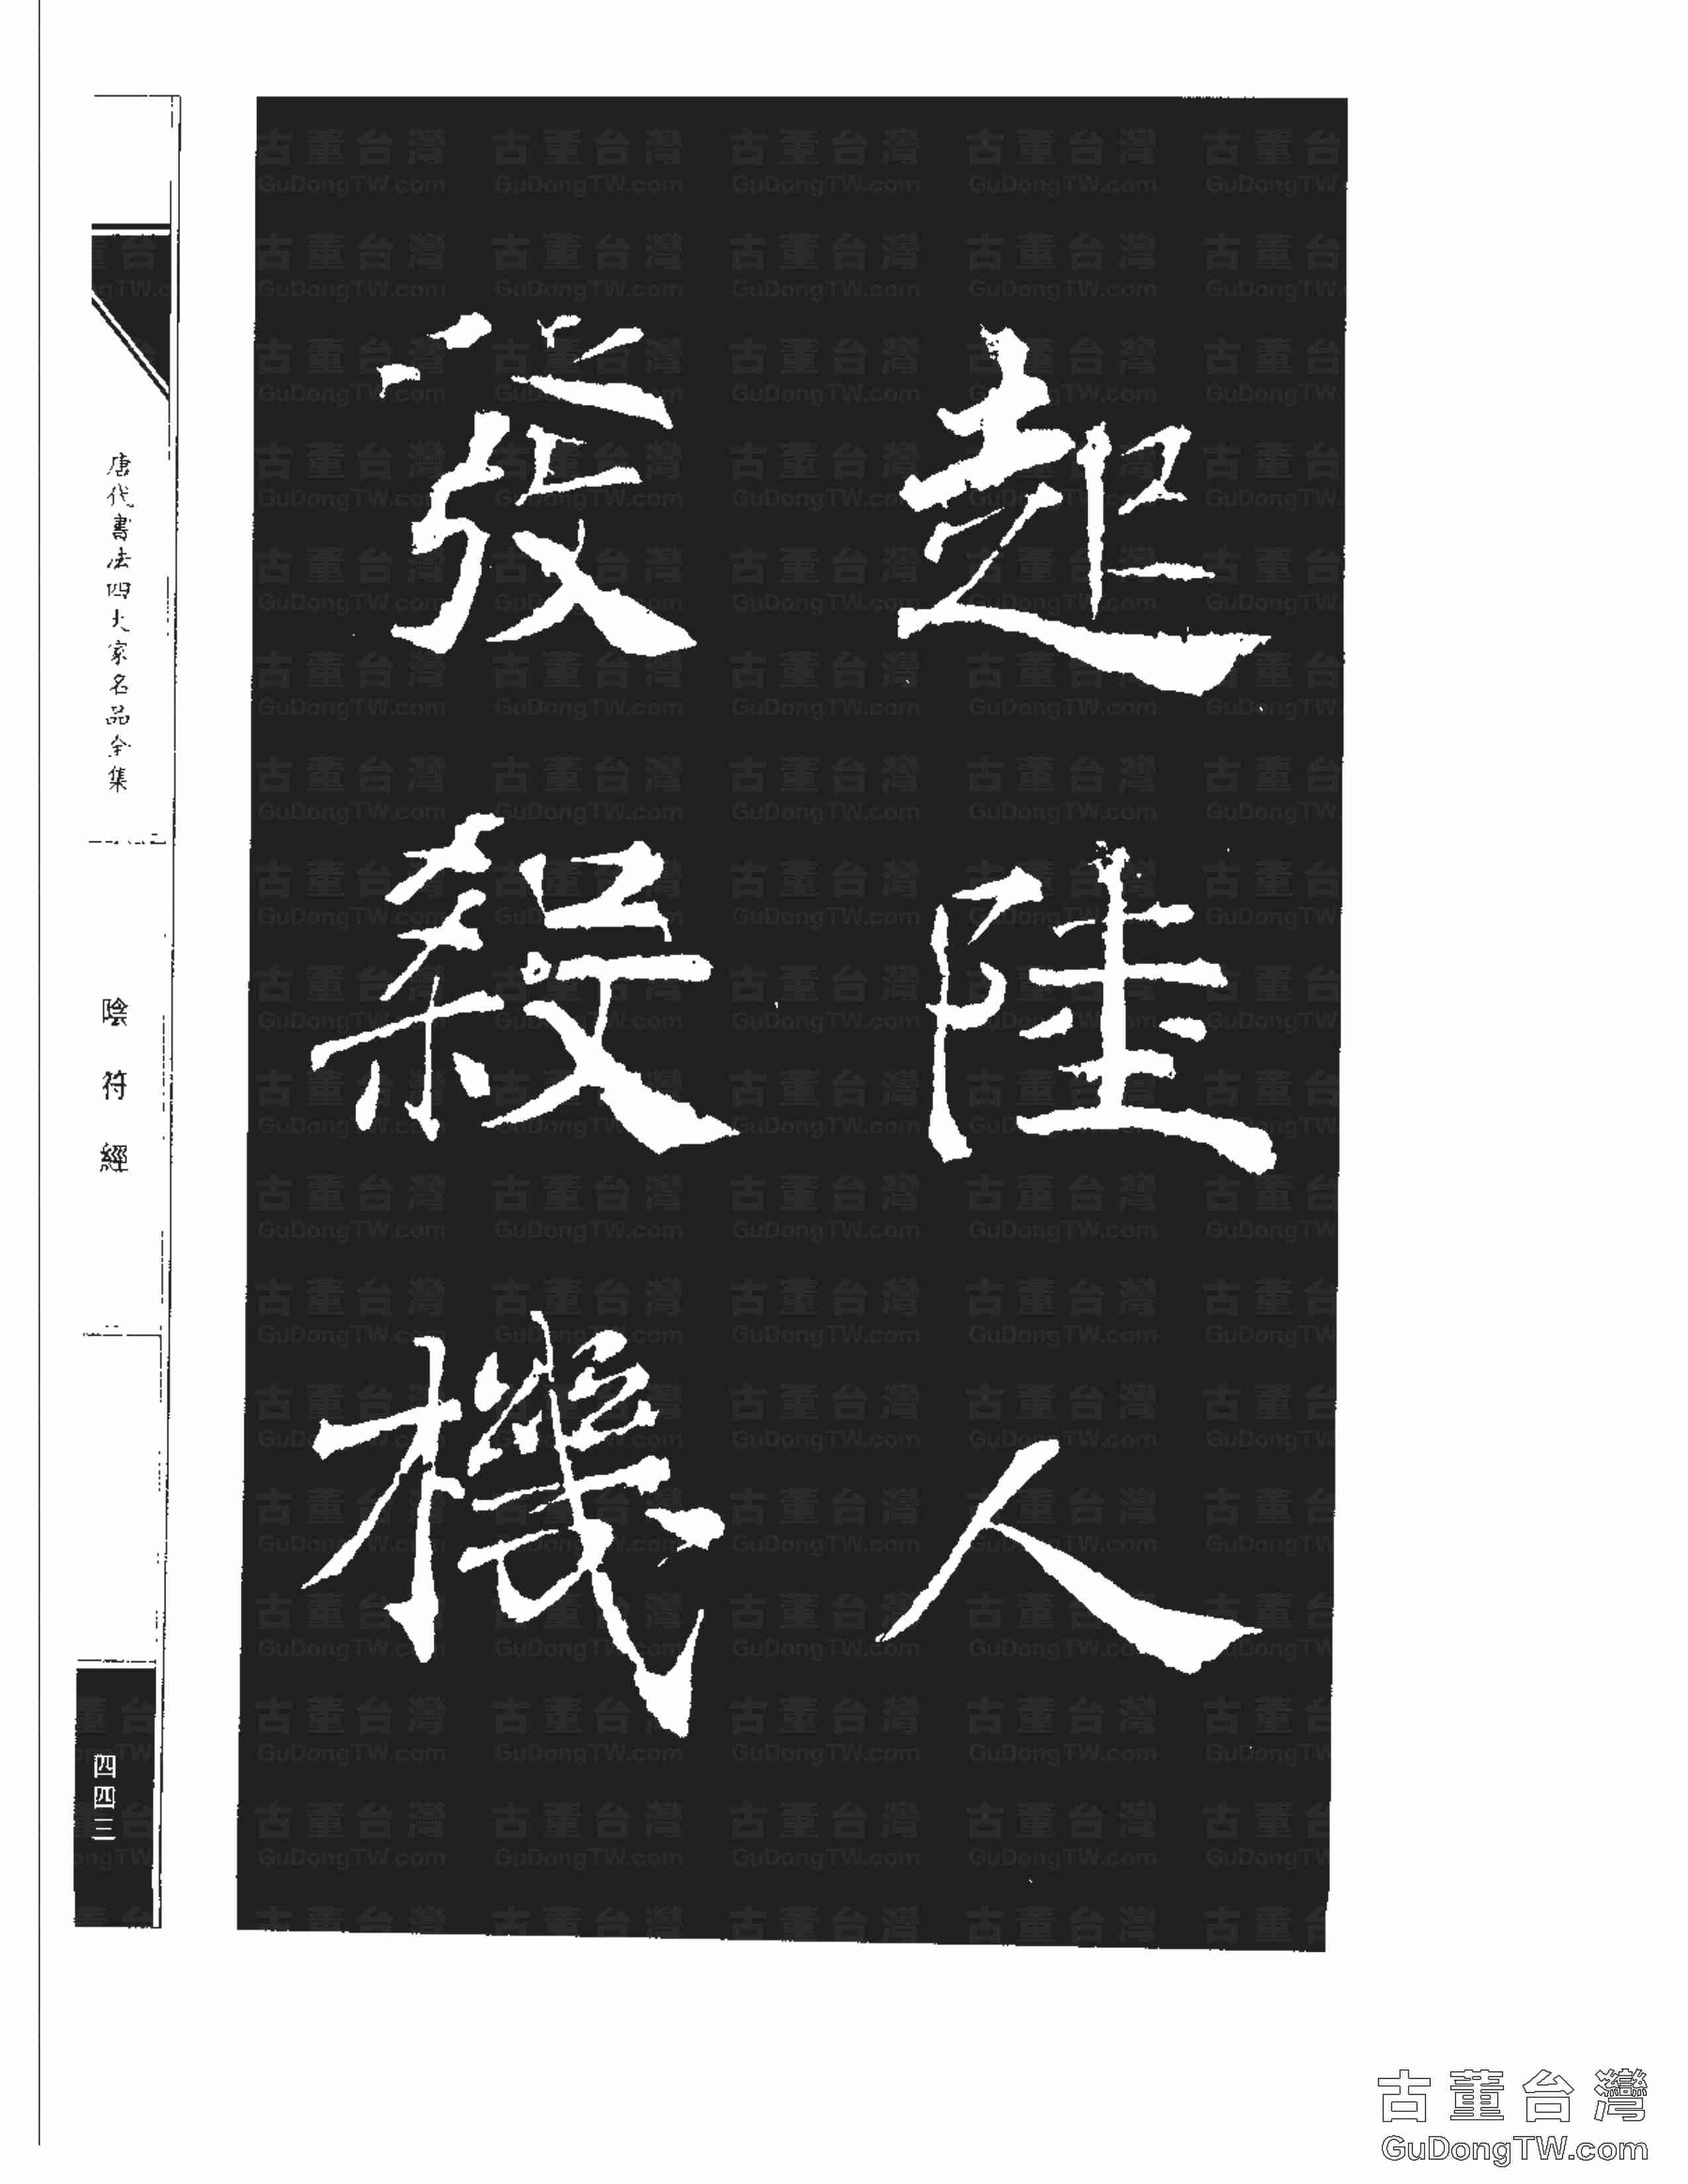 起陸人
發殺機
唐代書法四大家名品全集
陰符經
四四三
古董台灣
GuDongTW.com